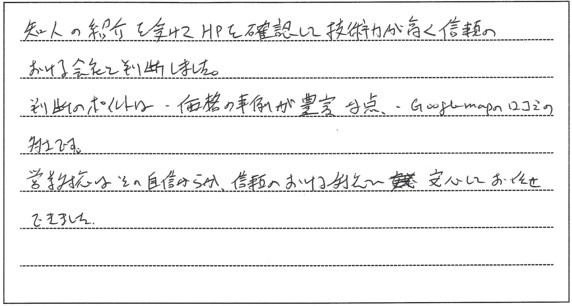 知人の紹介を受けてHPを確認して技術力が高く信頼の
おける会社と判断しました。
判断のポイントは・価格の事例が豊富な点、・Googlemapの口コミの
対応です。
営業対応はその自信からか、信頼のおける対応で 安心してお任せ
できました。